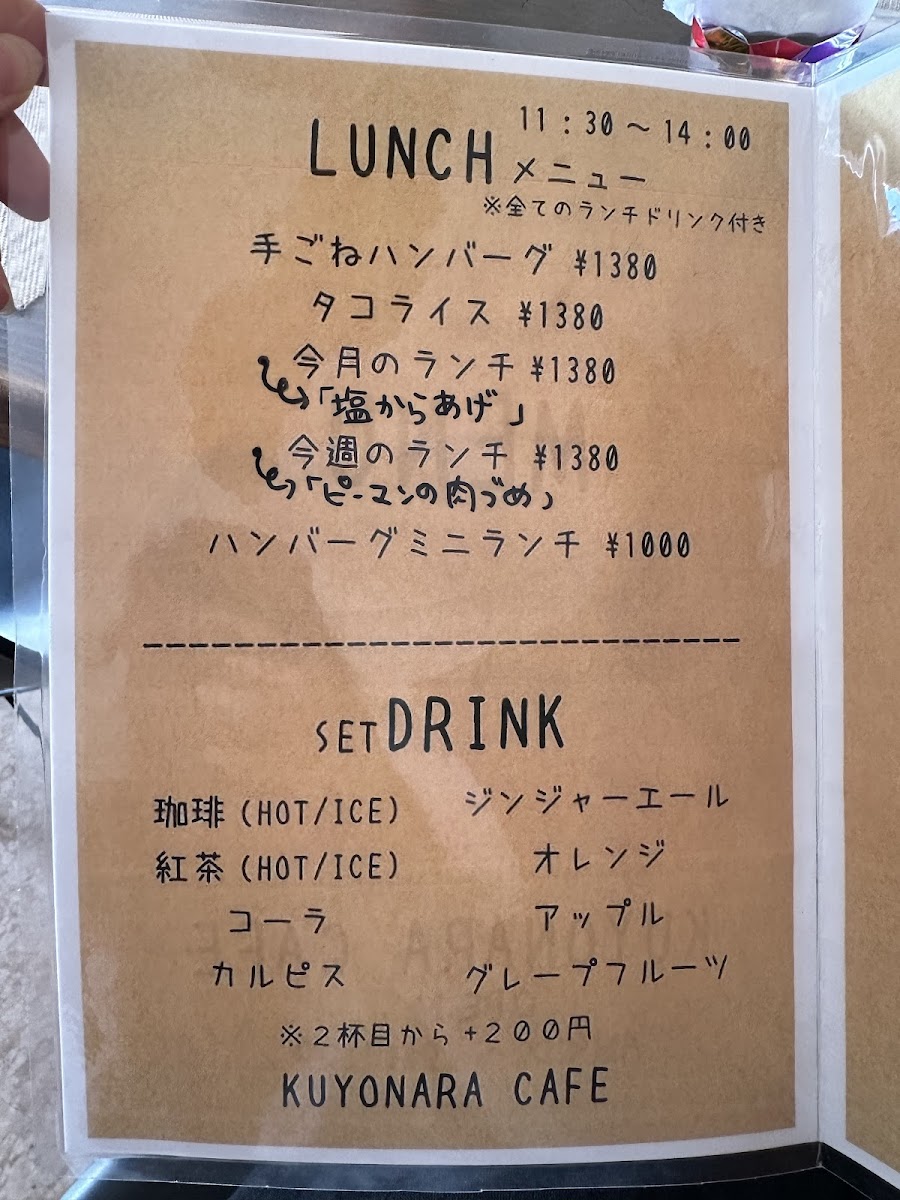 LUNCH メニュー 11:30~14:00
※全てのランチドリンク付き
手ごねハンバーグ ¥1380
タコライス ¥1380
今月のランチ ¥1380
「塩からあげ」
今週のランチ ¥1380
「ピーマンの肉づめ」
ハンバーグミニランチ ¥1000
SET DRINK
珈琲(HOT/ICE)
紅茶(HOT/ICE)
コーラ
カルピス
ジンジャーエール
オレンジ
アップル
グレープフルーツ
※2杯目から+200円
KUYONARA CAFE